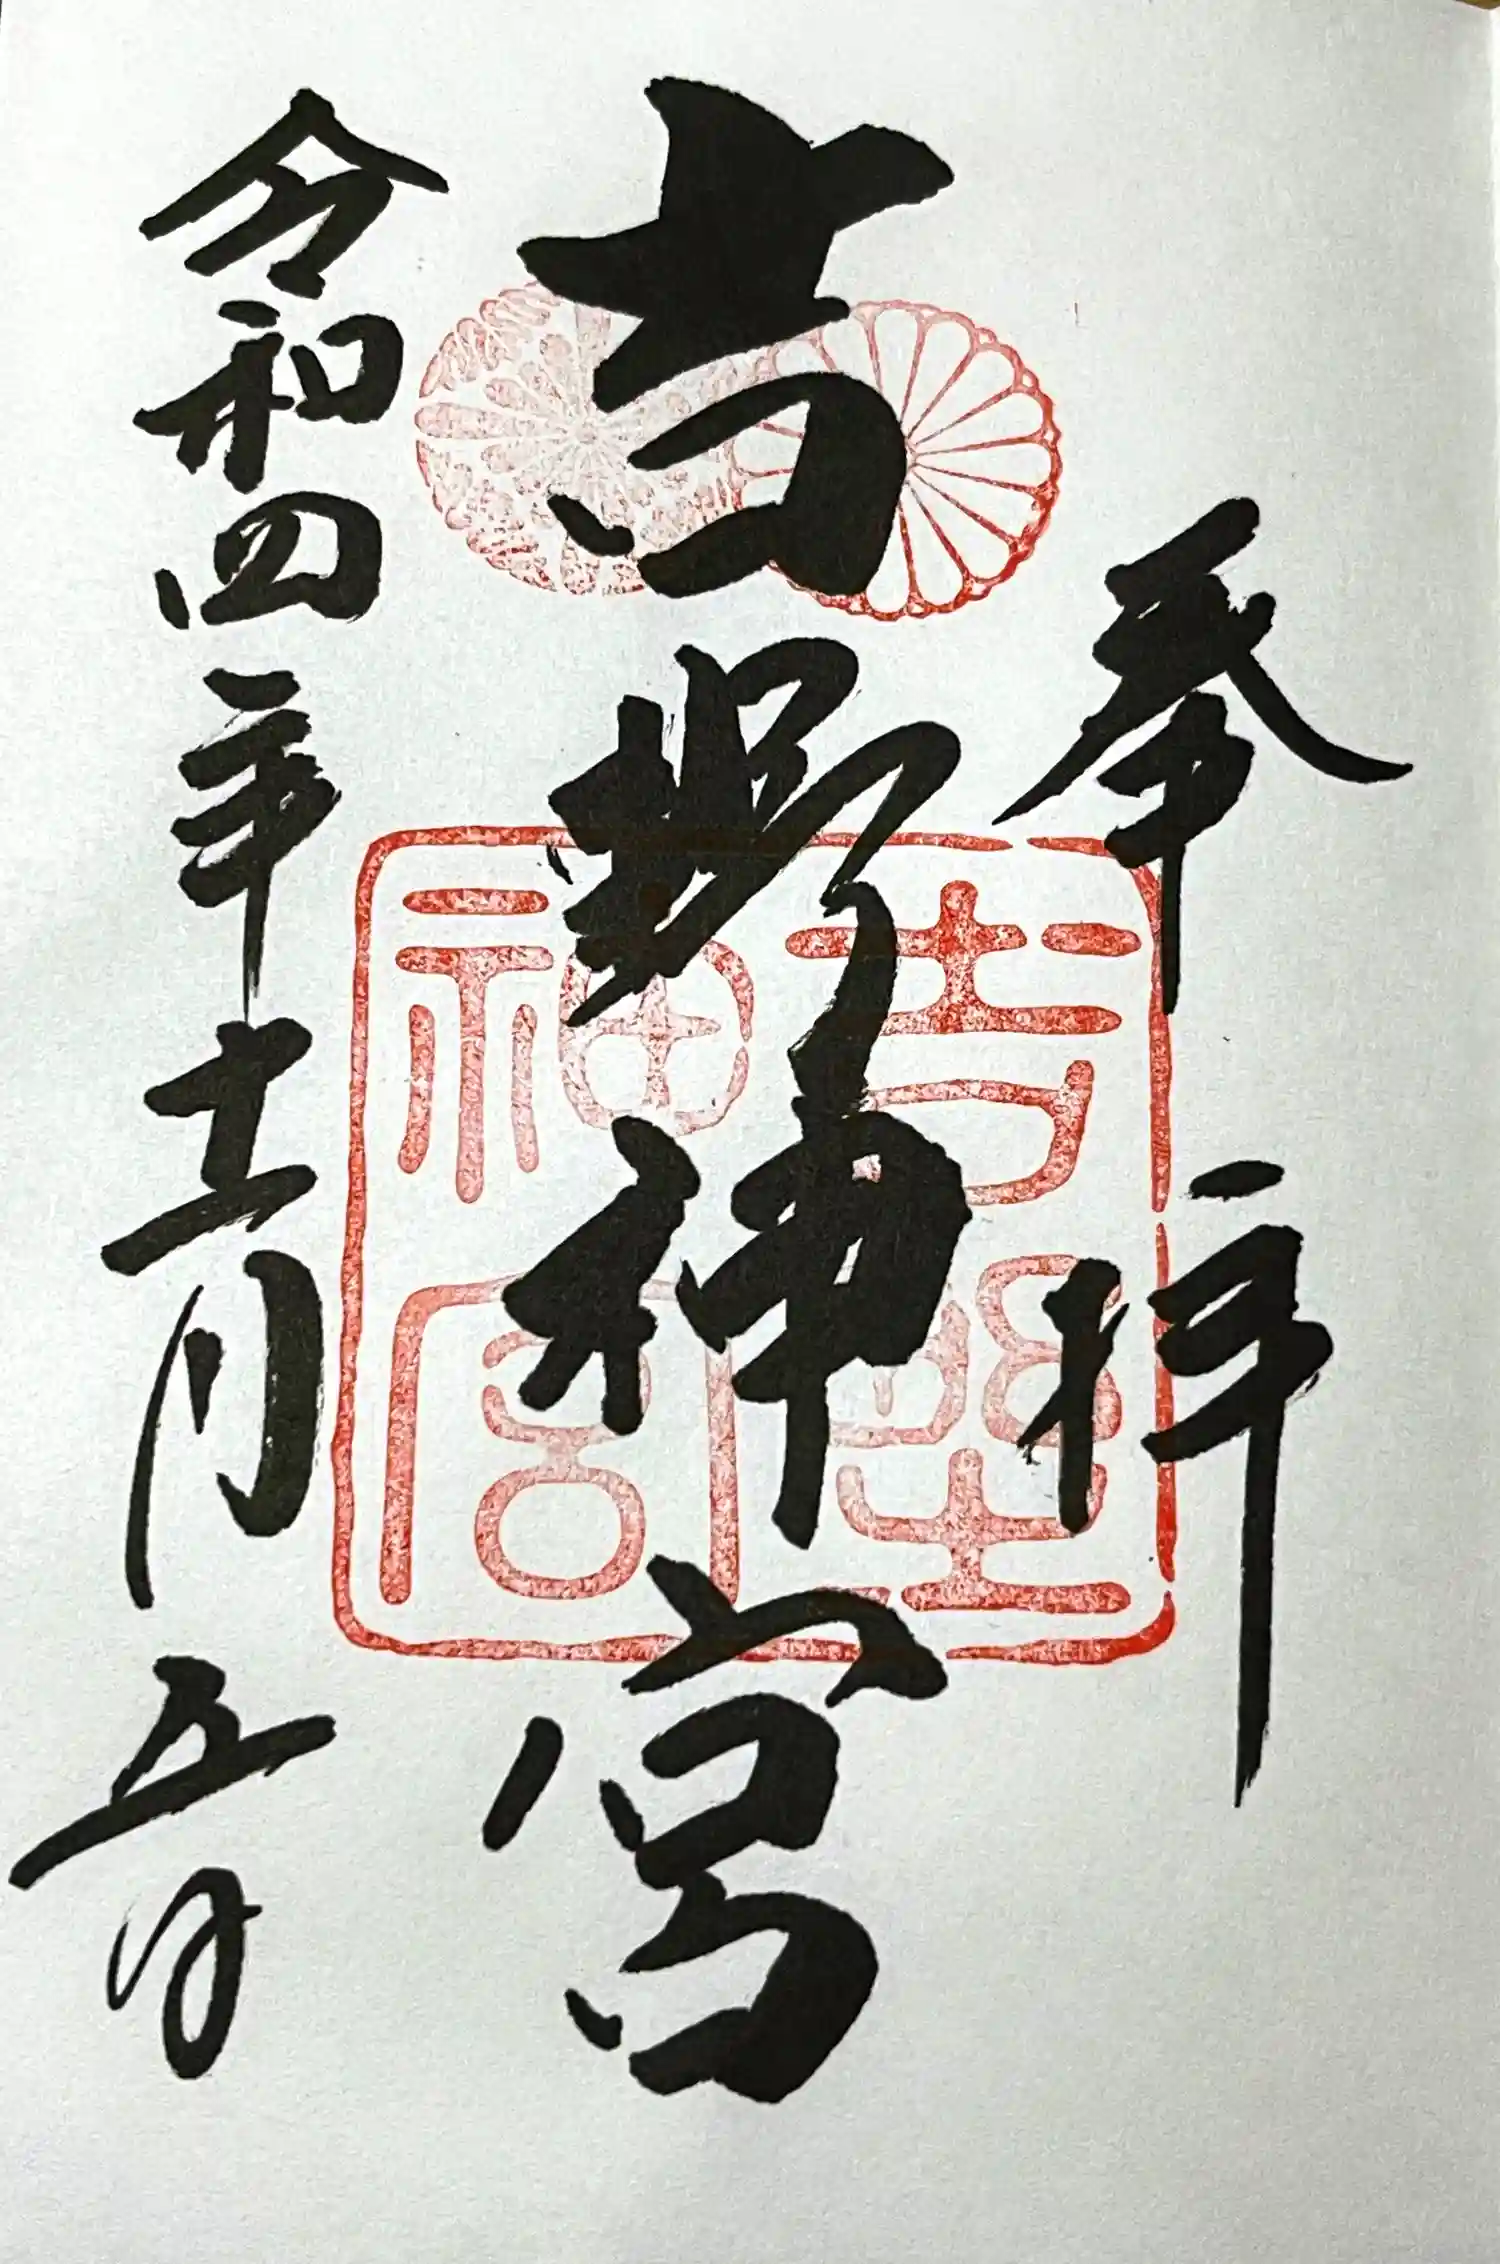 奉拝
吉野神宮
吉野神宮
令和四年十一月五日